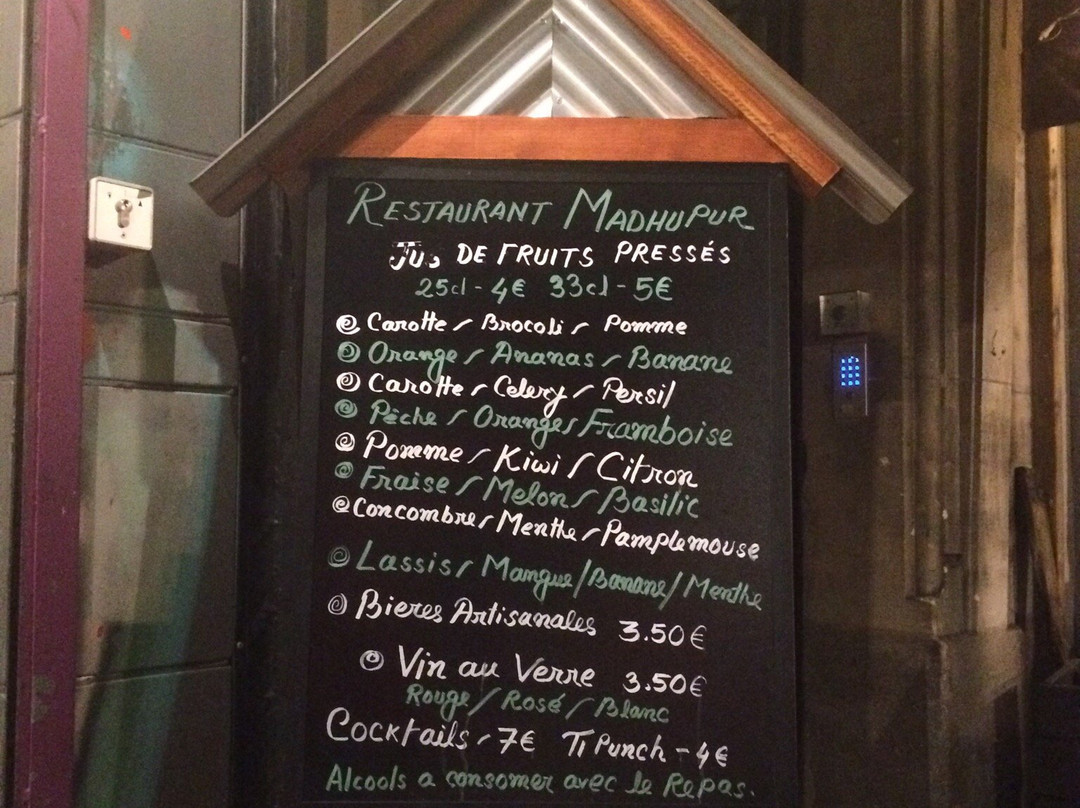 RESTAURANT MADHUPUR
JUS DE FRUITS PRESSÉS
25cl - 4€ 33cl - 5€
Carotte / Brocoli / Pomme
Orange / Ananas / Banane
Carotte / Celery / Persil
Pêche / Oranges / Framboise
Pomme / Kiwi / Citron
Fraise / Melon / Basilic
Concombre / Menthe / Pamplemouse
Lassis / Mangue / Banane / Menthe
Bieres Artisanales 3.50€
Vin au Verre 3.50€
Rouge / Rosé / Blanc
Cocktails - 7€ Ti Punch - 4€
Alcools a consomer avec le Repas.